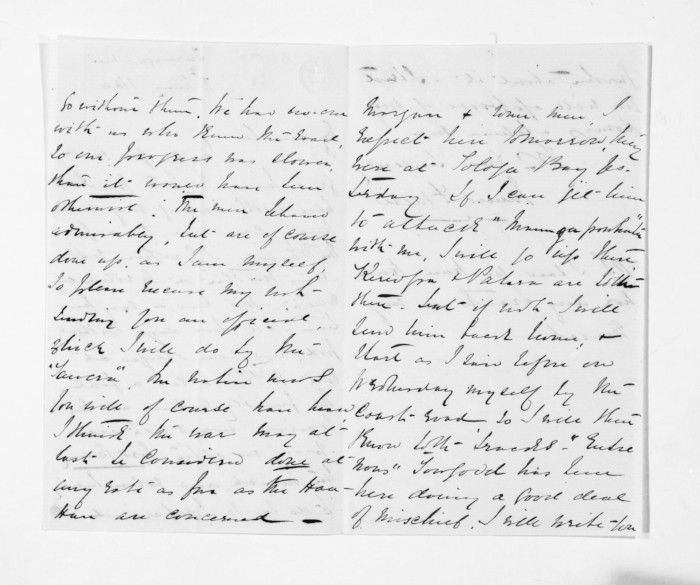 so without them. We had no-one
with us who knew the road,
so our progress was slower,
than it would have been
otherwise. The men behaved
admirably, but are of course
done up. as I am myself,
so please excuse my not
sending you an official,
which I will do by the
"Sturt". The native news
you will of course have heard
I think the war may at
last be considered done at
any rate as far as the Hau-
Hau are concerned —
Morgan & some men, I
expect here tomorrow, they
were at Tologa Bay yes-
terday If I can get him
to attack "Maungapowhatu"
with me, I will go up there
Kereopa & are both
there. but if not I will
send him back home, &
start as I said before on
Wednesday myself by the
Coast road so I will then
know both tracks. "Entre
nous" Towgood has been
here doing a good deal
of mischief. I will write you